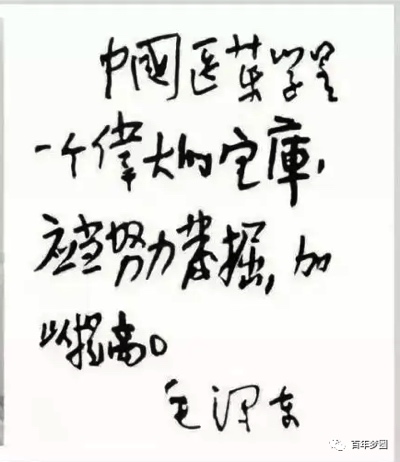 中國医薬学是
一个偉大的宝庫，
应当努力发掘，加
以提高。
毛泽东
百年梦圆